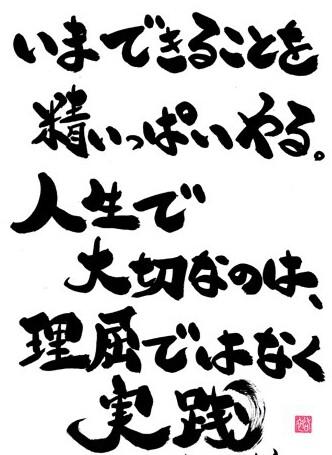 いまできることを
精いっぱいやる。
人生で
大切なのは、
理屈ではなく
実践